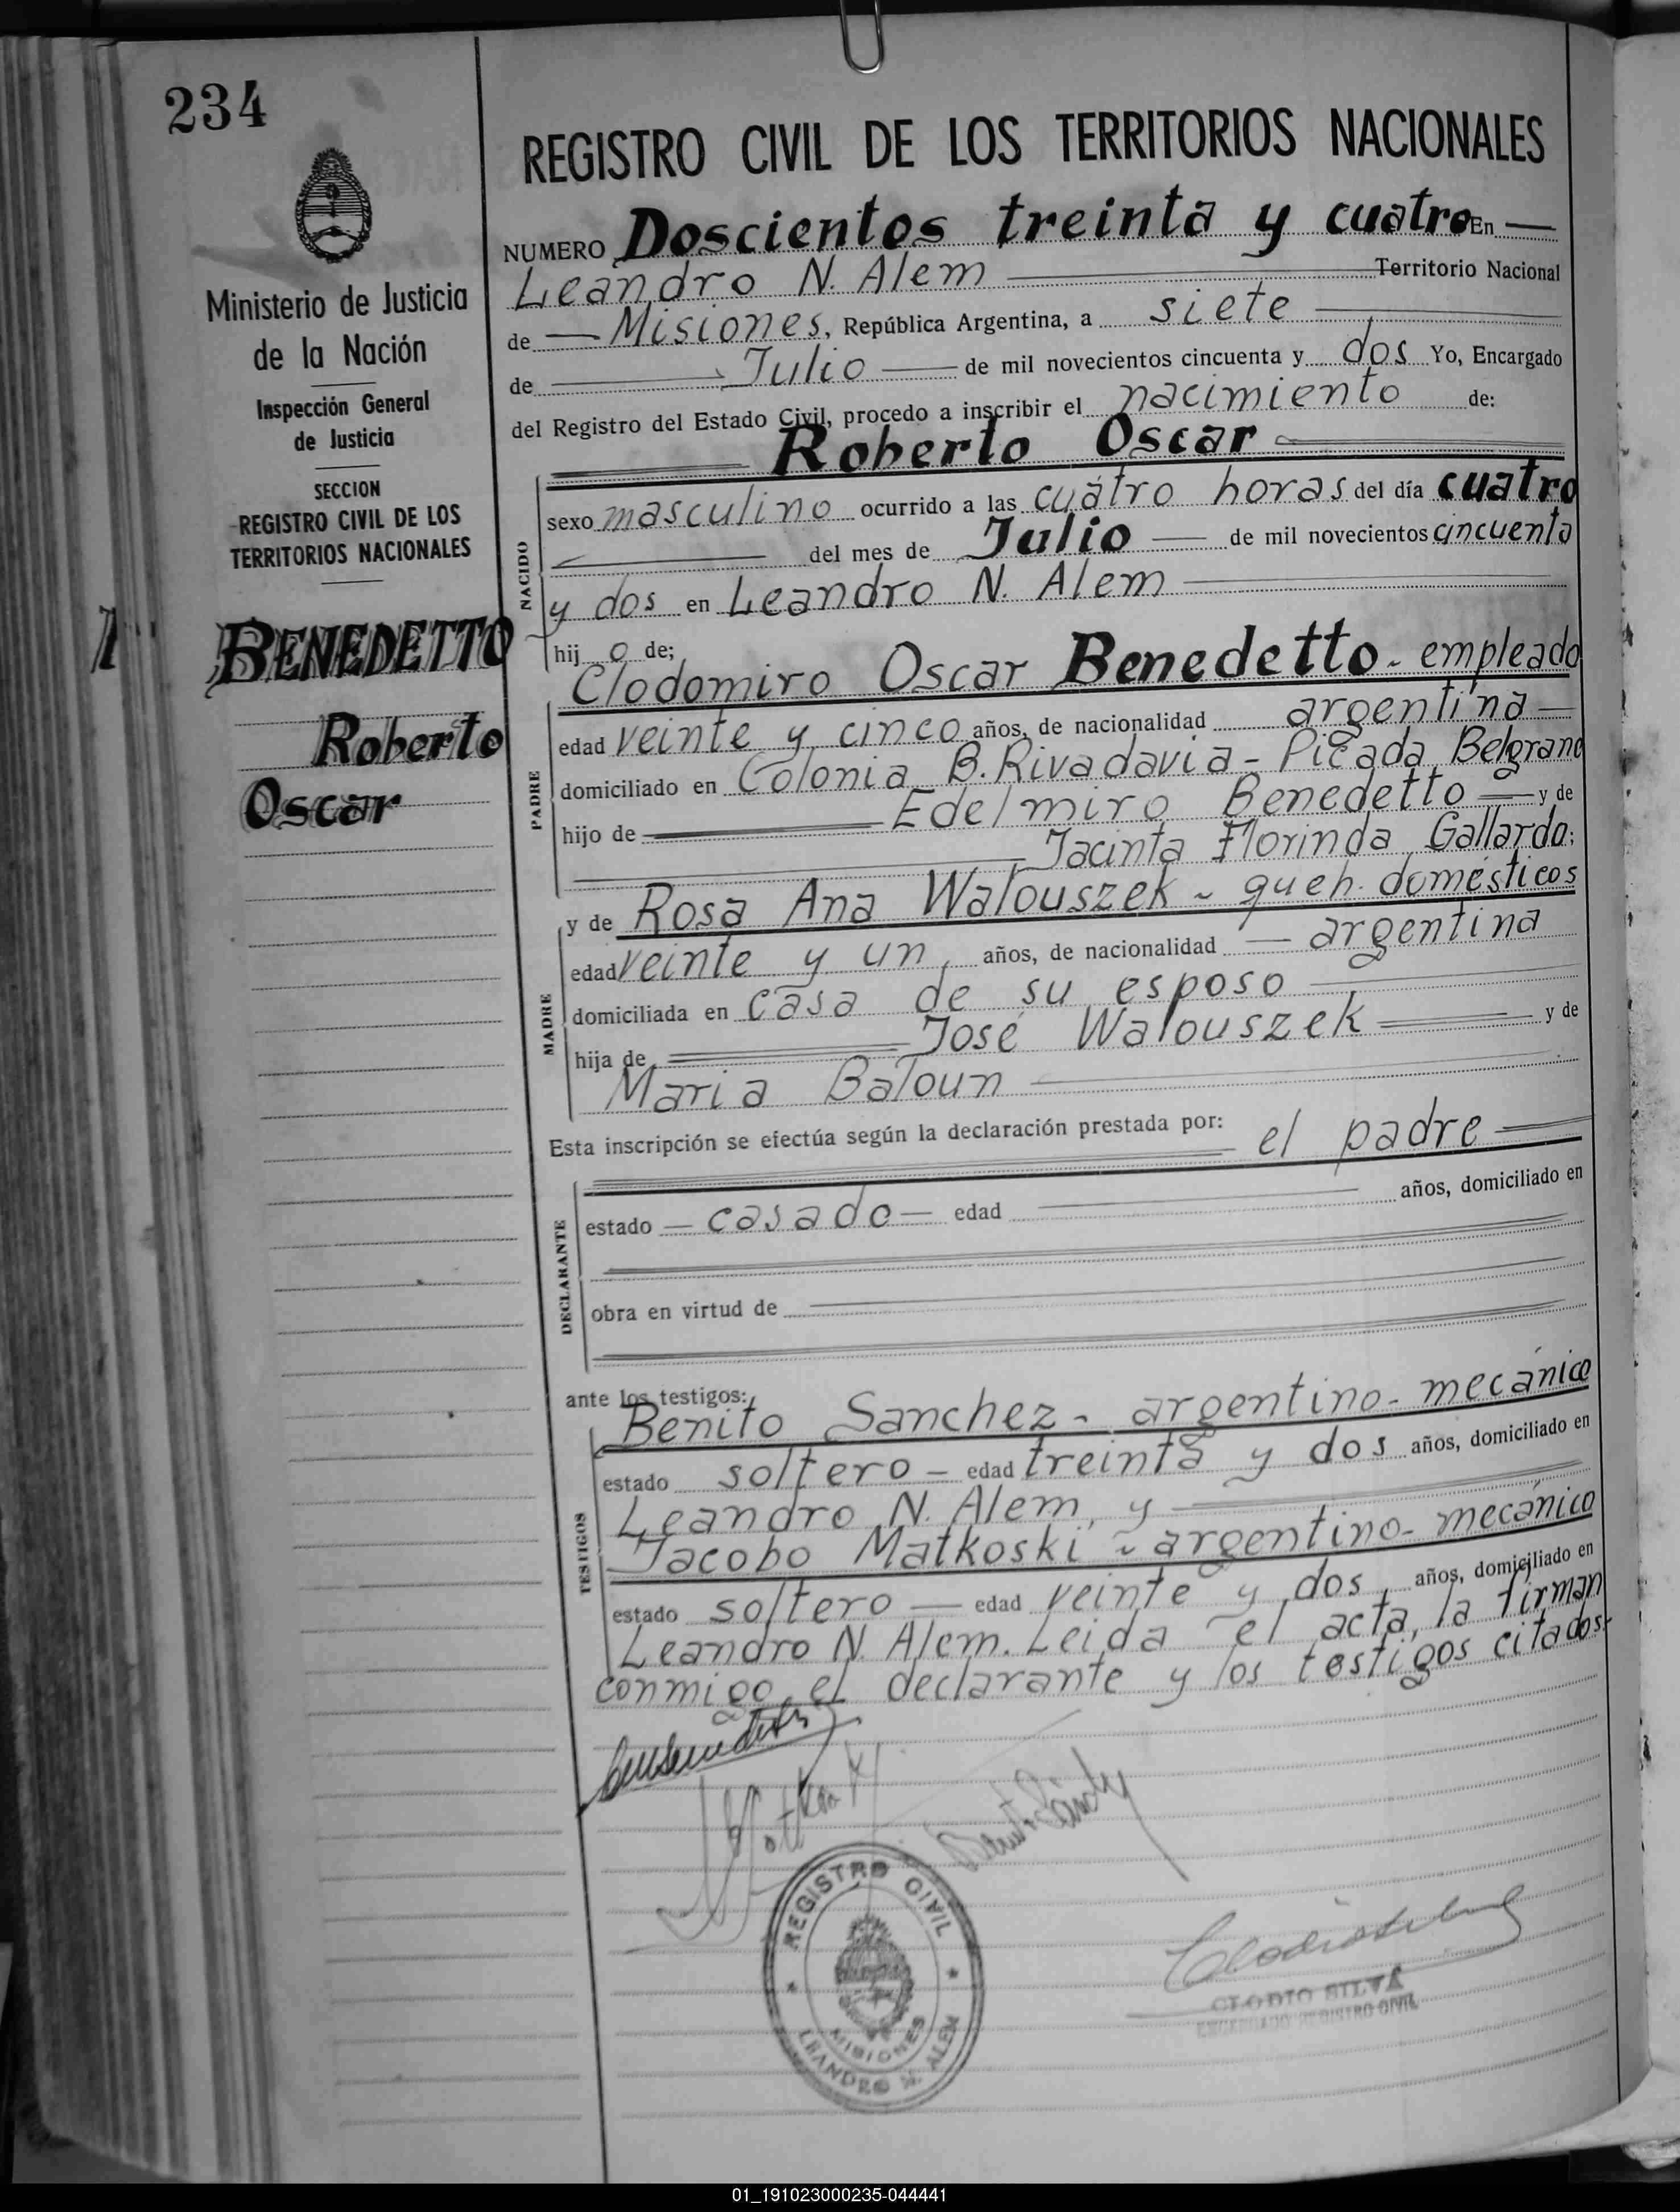 234
Ministerio de Justicia
de la Nación
Inspección General
de Justicia
SECCION
REGISTRO CIVIL DE LOS
TERRITORIOS NACIONALES
BENEDETTO
Roberto
Oscar
REGISTRO CIVIL DE LOS TERRITORIOS NACIONALES
NUMERO Doscientos treinta y cuatro En
Leandro N. Alem Territorio Nacional
de Misiones, República Argentina, a siete
de Julio de mil novecientos cincuenta y dos Yo, Encargado
del Registro del Estado Civil, procedo a inscribir el nacimiento de:
Roberto Oscar
NACIDO
sexo masculino ocurrido a las cuatro horas del día cuatro
del mes de Julio de mil novecientos cincuenta
y dos en Leandro N. Alem
hij o de;
PADRE
Clodomiro Oscar Benedetto - empleado
edad veinte y cinco años, de nacionalidad argentina
domiciliado en Colonia B. Rivadavia - Picada Belgrano
hijo de Edelmiro Benedetto y de
Jacinta Florinda Gallardo;
MADRE
y de Rosa Ana Walouszek - queh. domésticos
edad veinte y un, años, de nacionalidad argentina
domiciliada en casa de su esposo
hija de José Walouszek y de
Maria Baloun
Esta inscripción se efectúa según la declaración prestada por: el padre
DECLARANTE
estado casado edad años, domiciliado en
obra en virtud de
ante los testigos:
TESTIGOS
Benito Sanchez - argentino - mecánico
estado soltero - edad treinta y dos años, domiciliado en
Leandro N. Alem, y
Jacobo Matkoski - argentino - mecánico
estado soltero edad veinte y dos, años, domiciliado en
Leandro N. Alem. Leida el acta, la firman
conmigo el declarante y los testigos citados.-
REGISTRO CIVIL
MISIONES
LEANDRO N. ALEM
CLODIO SILVA
ENCARGADO REGISTRO CIVIL
01_191023000235-044441